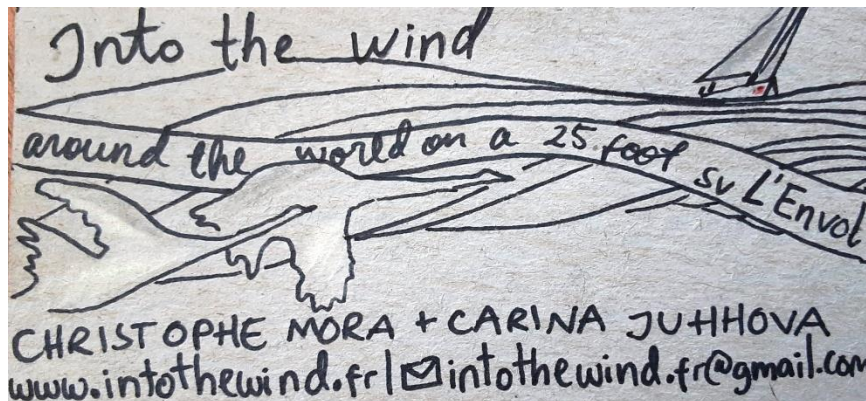 Into the wind
around the world on a 25 foot sv L'Envol
CHRISTOPHE MORA + CARINA JUHHOVA
www.intothewind.fr | intothewind.fr@gmail.com